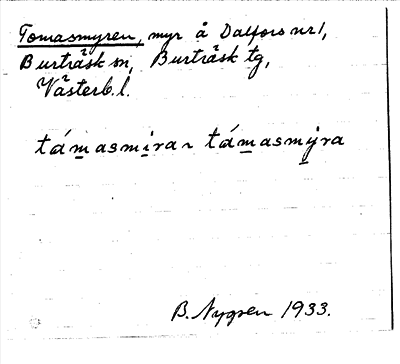 Tomasmyren, myr å Dalfors nr 1,
Burträsk sn, Burträsk tg,
Västerb. l.
támasmira ~ támasmýra
B. Nygren 1933.